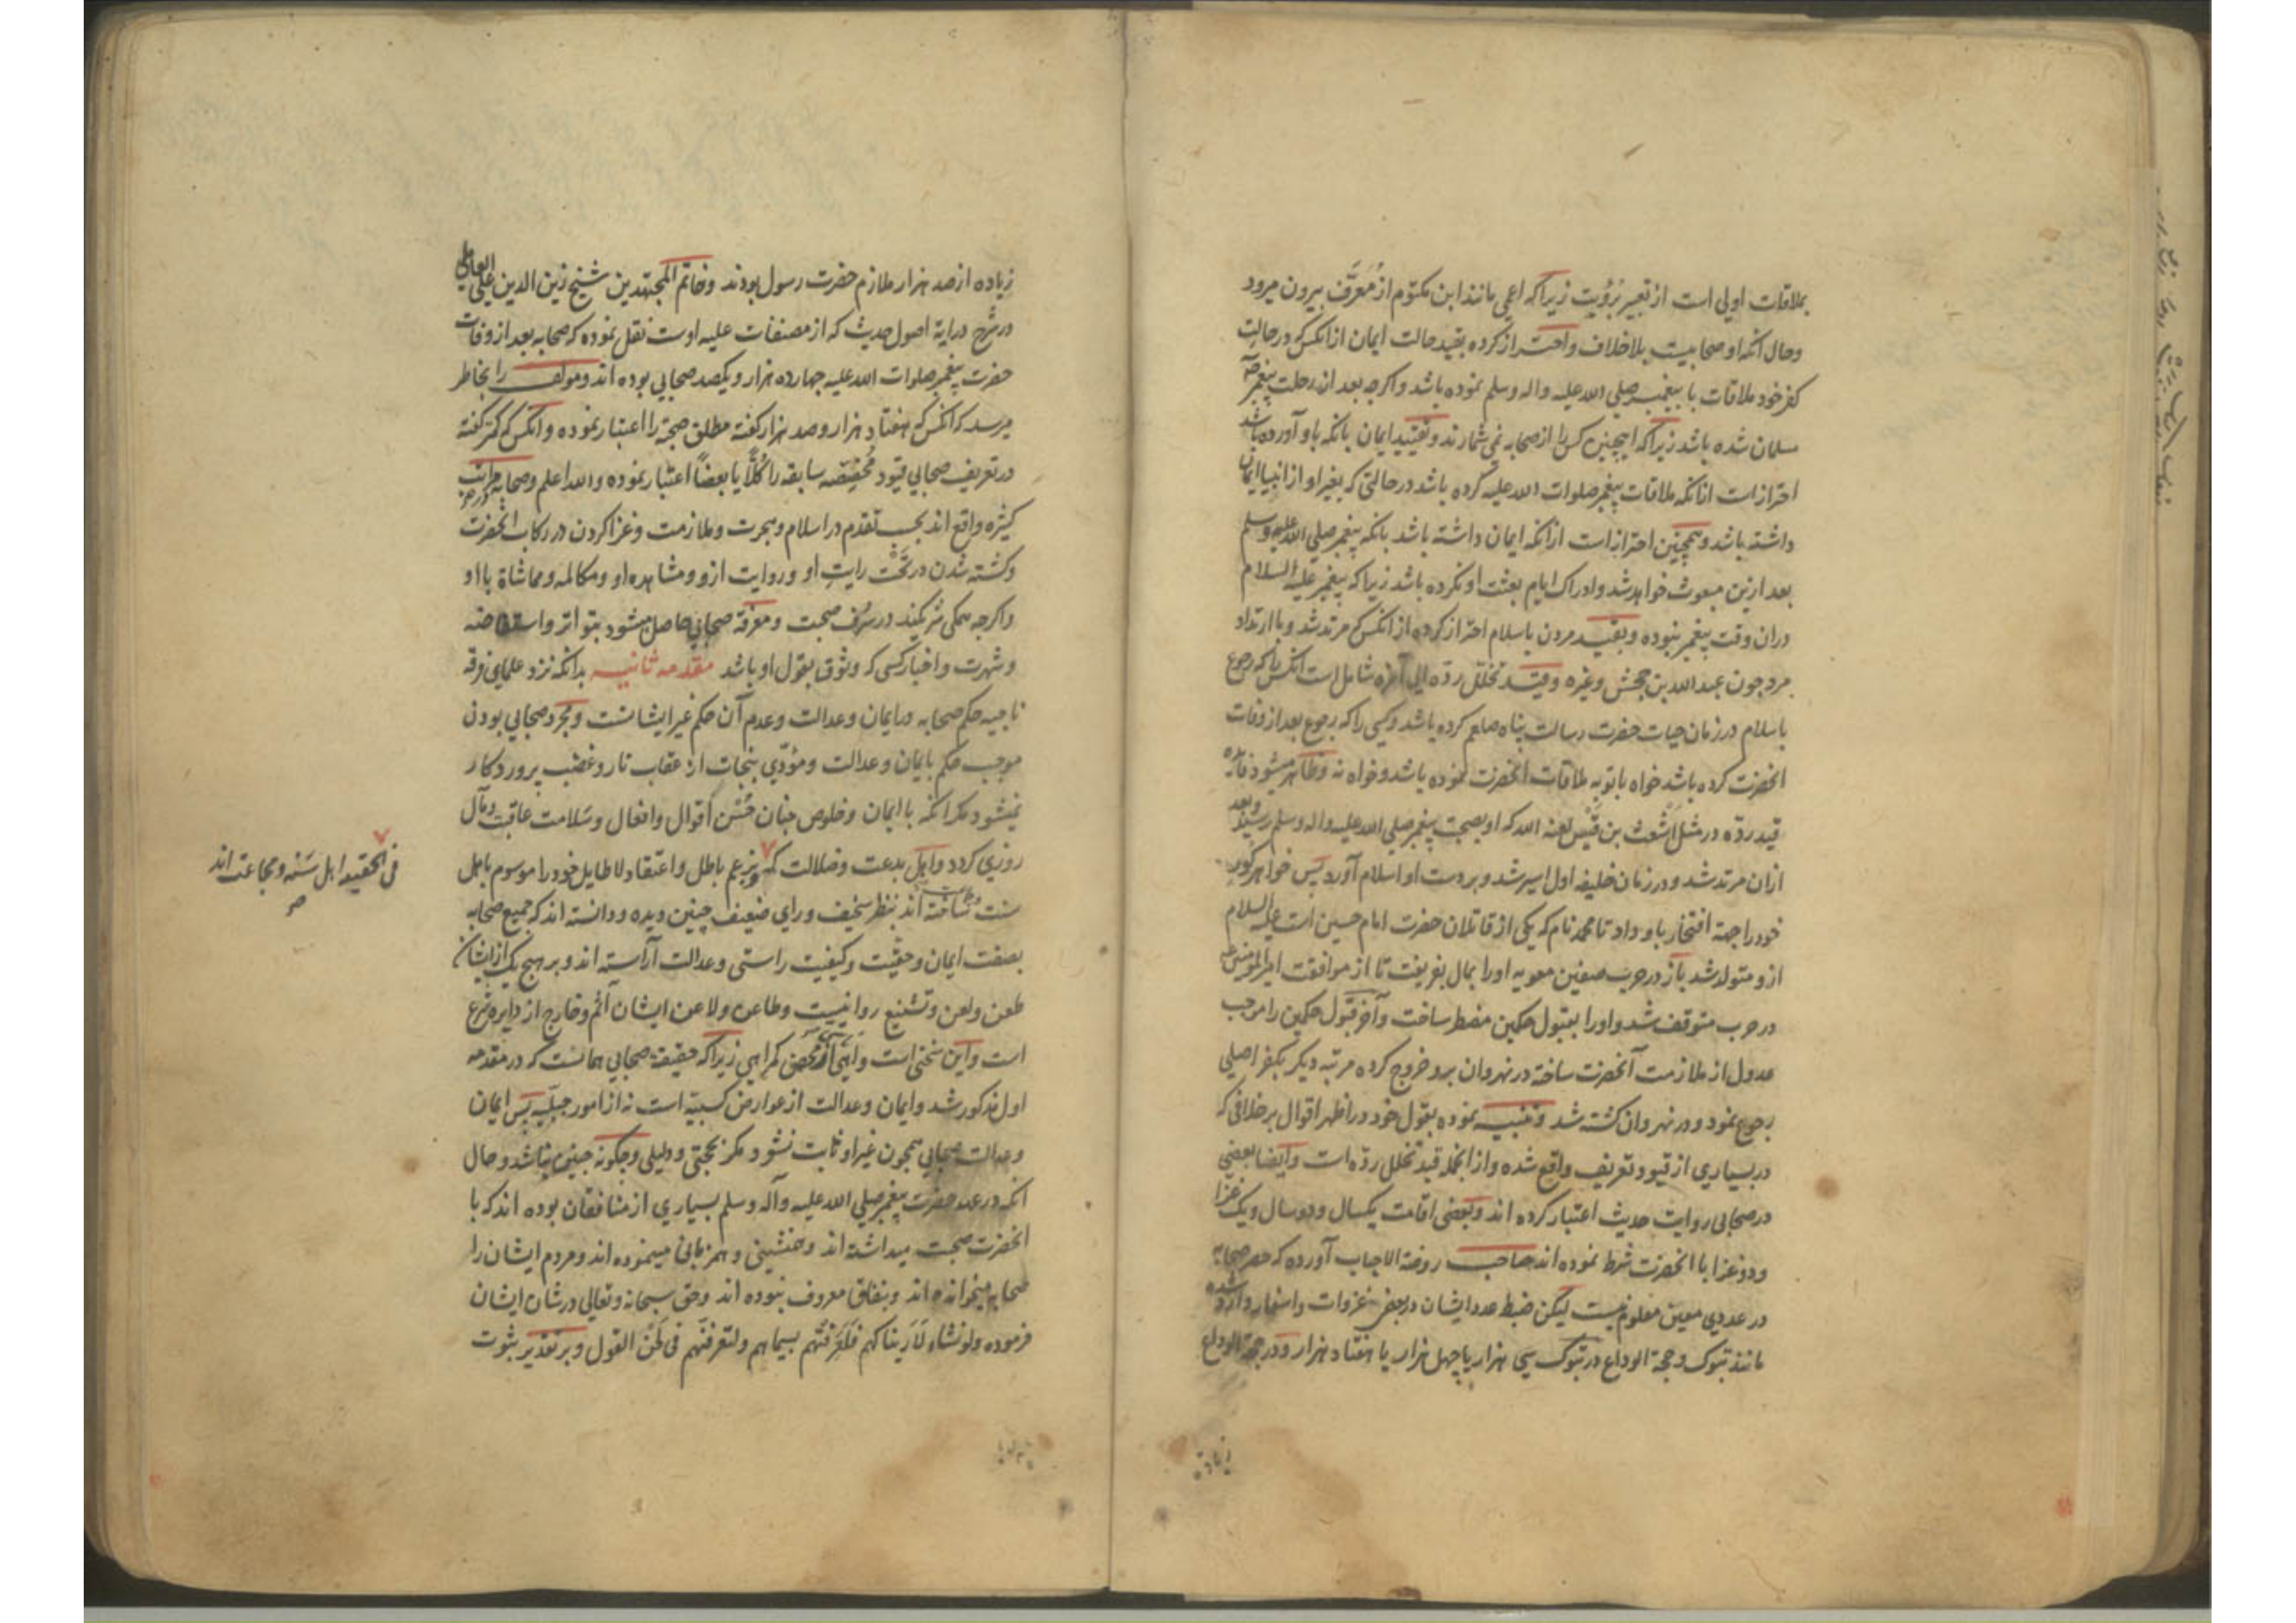 بملاقات اولی است از تعبیر برؤیت زیراکه اعمی مانند ابن مکتوم از مُعَرَّف بیرون میرود
وحال آنکه او صحابیست بلاخلاف واحتراز کرده بقید حالت ایمان از آنکس که در حالت
کفر خود ملاقات با پیغمبر صلی الله علیه واله وسلم نموده باشد واکرچه بعد از رحلت پیغمبر
مسلمان شده باشد زیراکه اینچنین کس را از صحابه نمی شمارند وتقیید ایمان بانکه باو آورده باشد
احتراز است ازانکه ملاقات پیغمبر صلوات الله علیه کرده باشد در حالتی که بغیر او از انبیا ایمان
داشته باشد وهمچنین احتراز است ازانکه ایمان داشته باشد بانکه پیغمبر صلی الله علیه وسلم
بعد ازین مبعوث خواهد شد وادراک ایام بعثت او نکرده باشد زیراکه پیغمبر علیه السلام
دران وقت پیغمبر نبوده وبقید مردن باسلام احتراز کرده از انکس که مرتد شد وبا ارتداد
مرد چون عبد الله بن جحش وغیره وقید تخلل ردّه الی آخره شامل است انکس را که رجوع
باسلام در زمان حیات حضرت رسالت پناه صلعم کرده باشد وکسی را که رجوع بعد از وفات
انحضرت کرده باشد خواه باتوبه ملاقات انحضرت نموده باشد وخواه نه وظاهر میشود فایده
قید ردّه در مثل اشعث بن قَیْس لعنه الله که او بصحبت پیغمبر صلی الله علیه واله وسلم رسید وبعد
ازان مرتد شد ودر زمان خلیفه اول اسیر شد وبر دست او اسلام آورد پس خواهر کور
خود را جهة افتخار باو داد تا محمد نام که یکی از قاتلان حضرت امام حسین است علیه السلام
ازو متولد شد باز در حرب صفین معویه اورا بمال بفریفت تا از موافقت امیر المومنین
در حرب متوقف شد واورا بقبول حکمین مضطر ساخت وآخر قبول حکمین را موجب
عدول از ملازمت آنحضرت ساخته در نهروان برو خروج کرده مرتبه دیکر بکفر اصلی
رجوع نمود ودر نهروان کشته شد وتنبیه نموده بقول خود در اظهر اقوال بر خلافی که
در بسیاری از قیود تعریف واقع شده واز انجمله قید تخلل ردّه است وایضا بعضی
در صحابی روایت حدیث اعتبار کرده اند وبعضی اقامت یکسال ودوسال ویک غزا
ودو غزا با انحضرت شرط نموده اند صاحب روضة الاحباب آورده که حصر صحابه
در عددی معین معلوم نیست لیکن ضبط عدد ایشان در بعض غزوات واسفار وارد شده
مانند تبوک وحجة الوداع در تبوک سی هزار یا چهل هزار یا هفتاد هزار ودر حجة الوداع
زیاده
زیاده از صد هزار ملازم حضرت رسول بودند وخاتم المجتهدین شیخ زین الدین علی العاملی
در شرح درایة اصول حدیث که از مصنفات علیه اوست نقل نموده که صحابه بعد از وفات
حضرت پیغمبر صلوات الله علیه چهارده هزار ویکصد صحابی بوده اند ومولف را بخاطر
میرسد که انکس که هفتاد هزار وصد هزار کفته مطلق صحبة را اعتبار نموده وانکس که کمتر کفته
در تعریف صحابی قیود مُخَصِّصَه سابقه را کُلًّا یا بعضاً اعتبار نموده والله اعلم وصحابه در مراتب
کثیره واقع اند بحسب تقدم در اسلام وهجرت وملازمت وغزا کردن در رکاب انحضرت
وکشته شدن در تَحْت رایت او وروایت ازو ومشاهده او ومکالمه ومماشاة با او
واکرچه همکی شریکند در شرف صحبت ومعرفة صحابی حاصل میشود بتواتر واستفاضه
وشهرت واخبار کسی که وثوق بقول او باشد مقدمه ثانیه بدانکه نزد علمای فرقه
ناجیه حکم صحابه در ایمان وعدالت وعدم آن حکم غیر ایشانست ومجرد صحابی بودن
موجب حکم بایمان وعدالت ومؤدّی بنجات از عقاب نار وغضب پروردکار
نمیشود مکر انکه با ایمان وخلوص جنان حُسْن اقوال وافعال وسَلامت عاقبت ومآل
روزی کردد واهل بدعت وضلالت که بزعم باطل واعتقاد لاطایل خود را موسوم باهل
سنت ساخته اند بنظر سخیف ورای ضعیف چنین دیده ودانسته اند که جمیع صحابه
بصفت ایمان وحقیّت وکیفیت راستی وعدالت آراسته اند وبر هیچ یک از ایشان
طعن ولعن وتشنیع روا نیست وطاعن ولاعن ایشان آثم وخارج از دایره شرع
است واین سخنی است واهی ومحض کمراهی زیراکه حقیقة صحابی همانست که در مقدمه
اول مذکور شد وایمان وعدالت از عوارض کسبیّه است نه از امور جبلّیه پس ایمان
وعدالت صحابی همچون غیر او ثابت نشود مکر بحجتی ودلیلی وچکونه چنین نباشد وحال
انکه در عهد حضرت پیغمبر صلی الله علیه وآله وسلم بسیاری از منافقان بوده اند که با
انحضرت صحبت میداشته اند وهمنشینی وهمزبانی مینموده اند ومردم ایشان را
صحابه میخوانده اند وبنفاق معروف نبوده اند وحق سبحانه وتعالی در شان ایشان
فرموده ولو نشاء لَأَریناکهم فَلَعَرَفْتَهُم بسیماهم ولتعرفنّهم فی لَحْن القول وبر تقدیر ثبوت
فی الحقیقه اهل سَنَه ومجاعت اند
صح